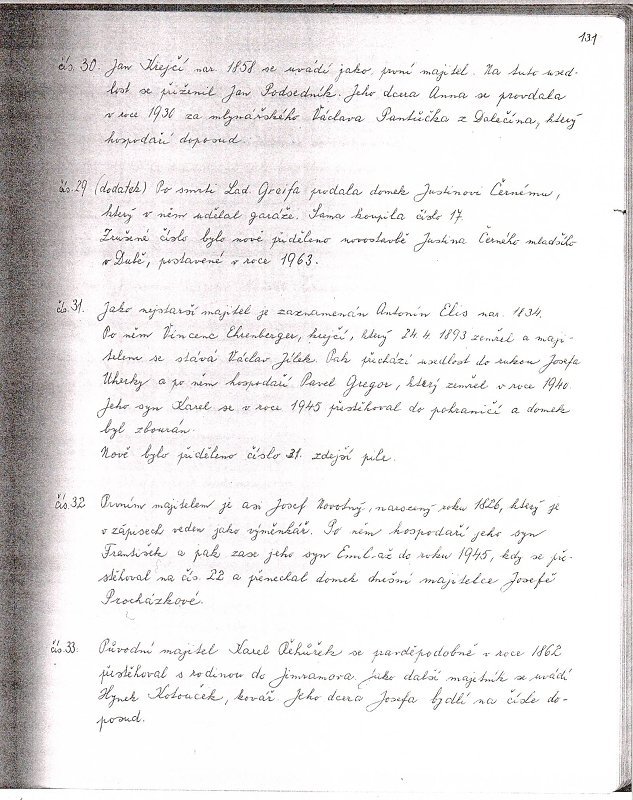 131
čís. 30. Jan Krejčí nar. 1858 se uvádí jako první majitel. Na tuto used-
lost se přiženil Jan Podsedník. Jeho dcera Anna se provdala
v roce 1930 za mlynářského Václava Pantůčka z Dalečína, který
hospodaří doposud.
čís. 29 (dodatek) Po smrti Lad. Greifa prodala domek Justinovi Černému,
který v něm udělal garáže. Sama koupila číslo 17.
Zrušené číslo bylo nově přiděleno novostavbě Justina Černého mladšího
v Dubě, postavené v roce 1963.
čís. 31. Jako nejstarší majitel je zaznamenán Antonín Elis nar. 1834.
Po něm Vincenc Ehrenberger, krejčí, který 24. 4. 1893 zemřel a maji-
telem se stává Václav Jílek. Pak přechází usedlost do rukou Josefa
Uherky a po něm hospodaří Pavel Gregor, který zemřel v roce 1940.
Jeho syn Karel se v roce 1945 přestěhoval do pohraničí a domek
byl zbourán.
Nově bylo přiděleno číslo 31. zdejší pile.
čís. 32 Prvním majitelem je asi Josef Novotný, narozený roku 1826, který je
v zápisech veden jako výměnkář. Po něm hospodaří jeho syn
František a pak zase jeho syn Emil. až do roku 1945, kdy se pře-
stěhoval na čís. 22 a přenechal domek dnešní majitelce Josefě
Procházkové.
čís. 33. Původní majitel Karel Řehůřek se pravděpodobně v roce 1862
přestěhoval s rodinou do Jimramova. Jako další majetník se uvádí
Hynek Kotouček, kovář. Jeho dcera Josefa bydlí na čísle do-
posud.